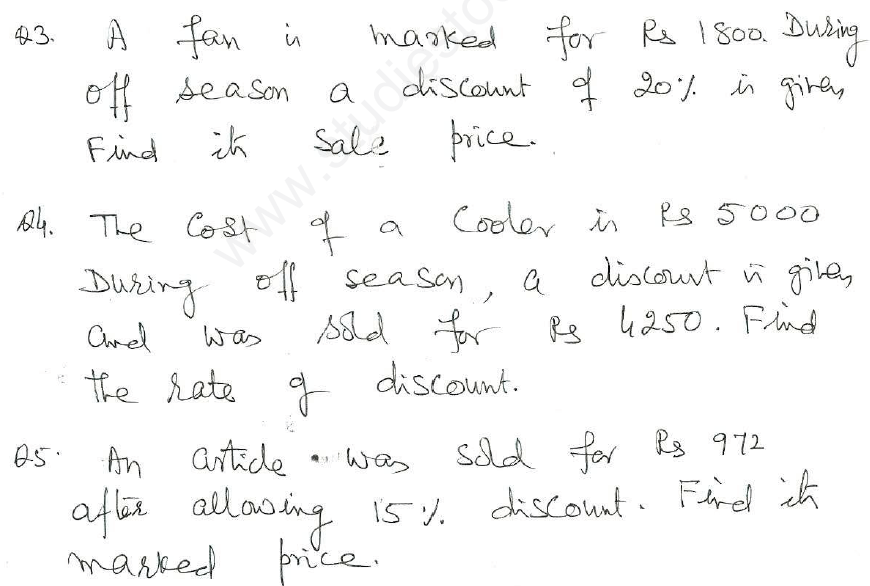 Q3. A fan is marked for Rs 1800. During
off season a discount of 20% is given
Find its Sale price.
Q4. The Cost of a Cooler is Rs 5000
During off season, a discount is given
and was sold for Rs 4250. Find
the rate of discount.
Q5. An article was sold for Rs 972
after allowing 15% discount. Find its
marked price.